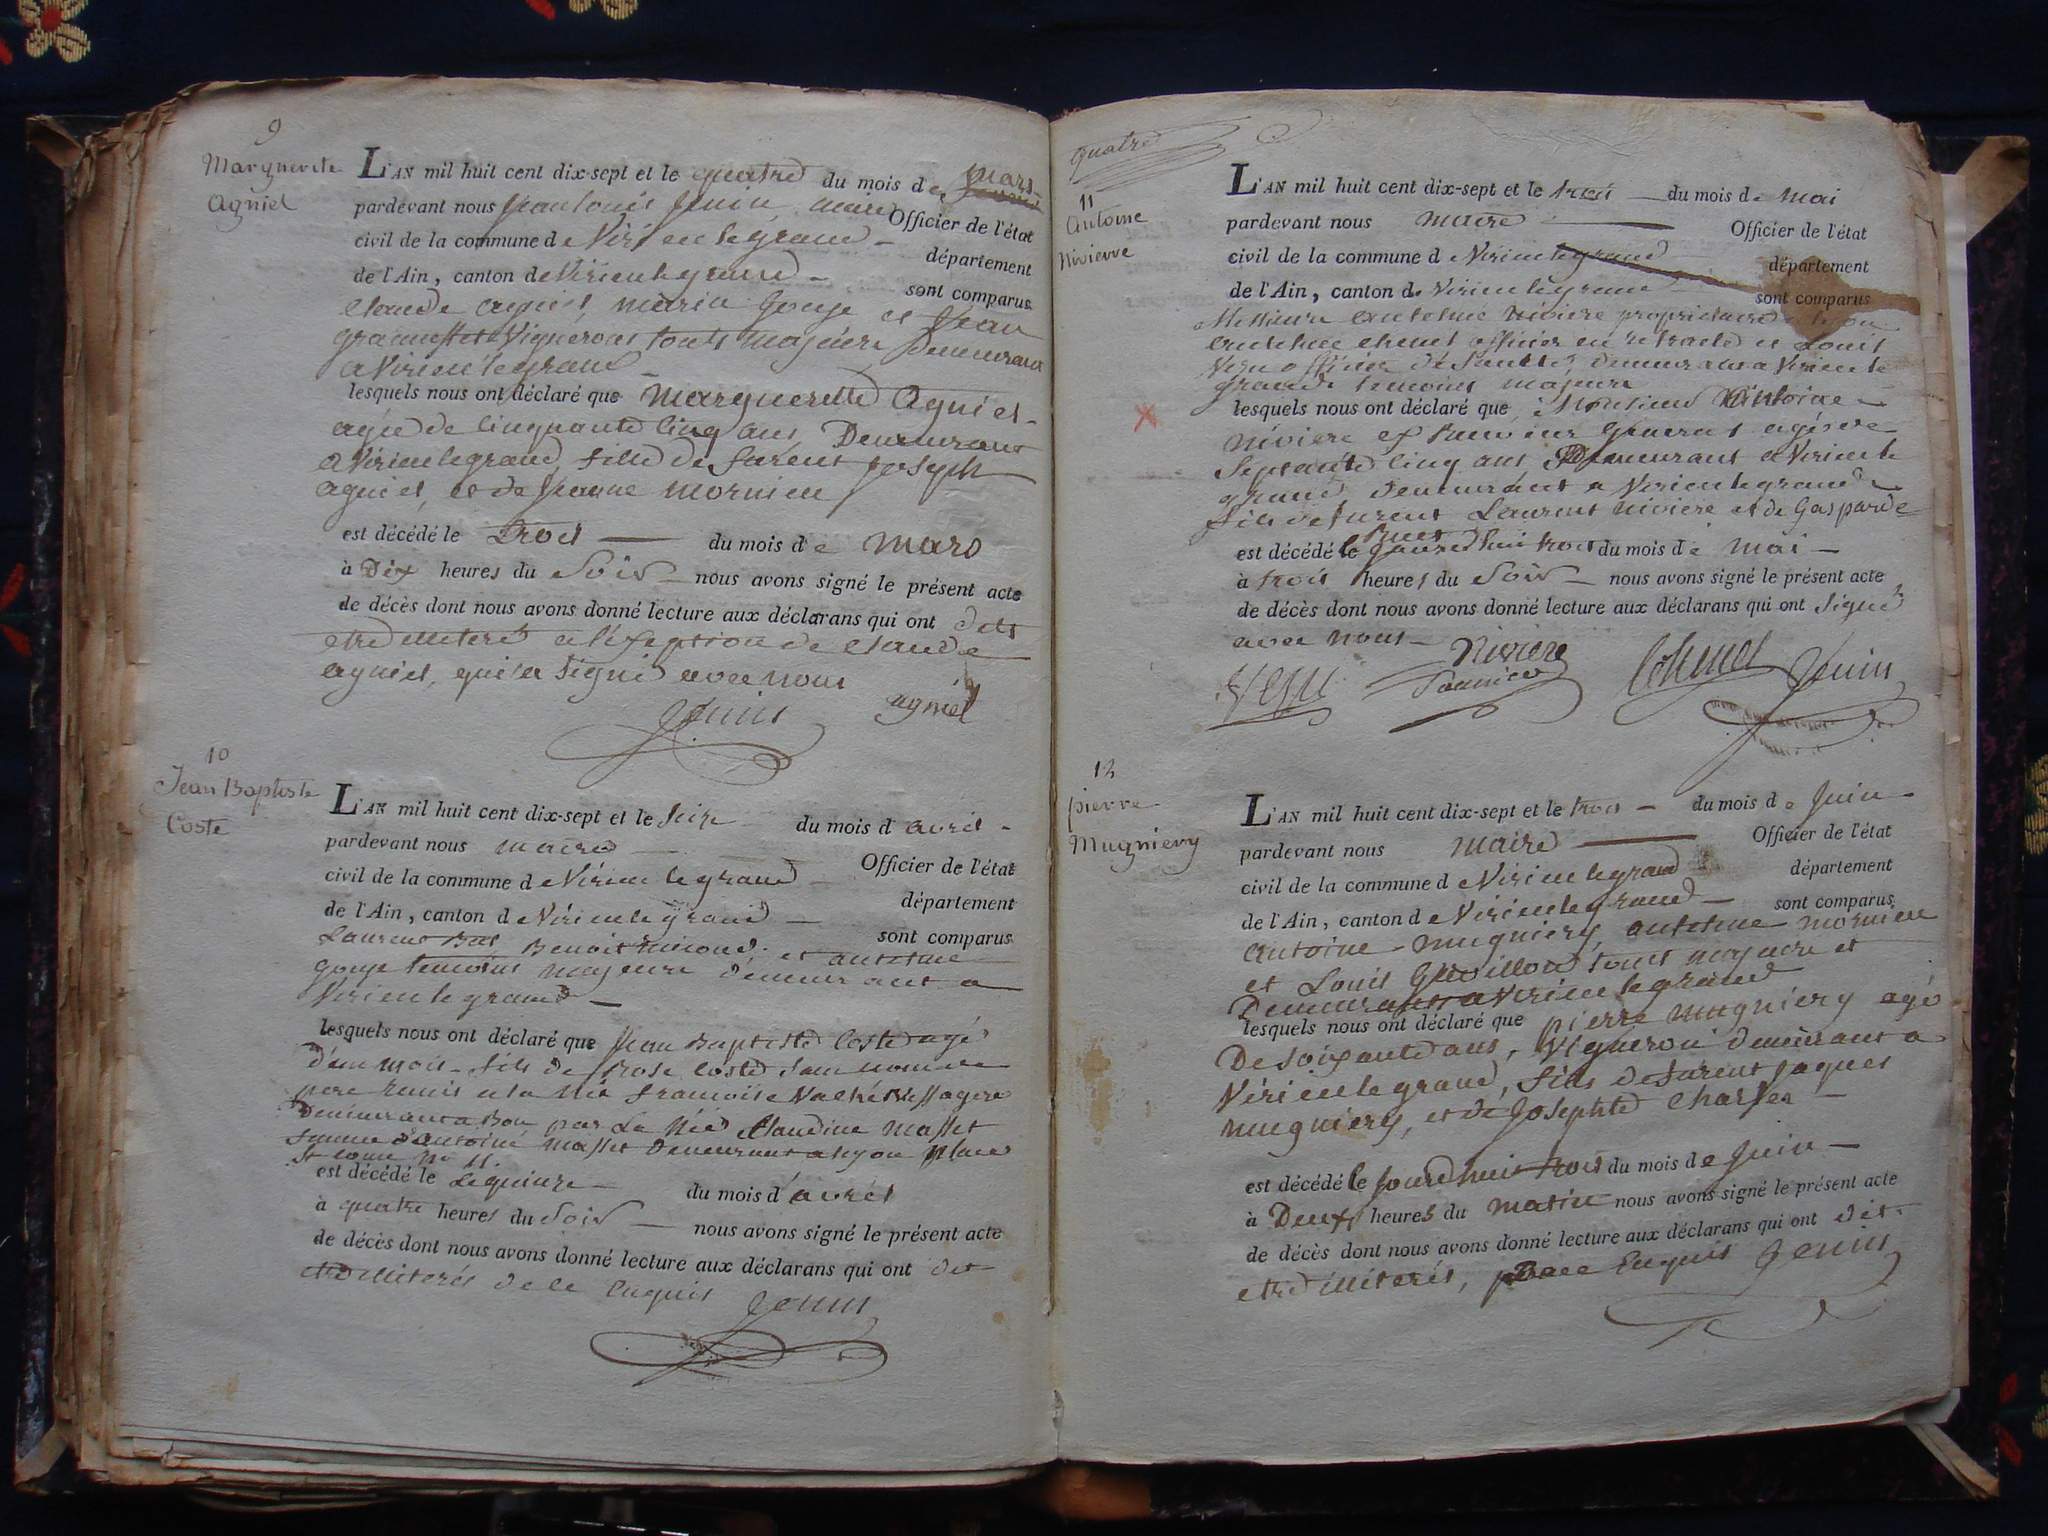 9
Marguerite
Agniel
L'AN mil huit cent dix-sept et le quatre du mois de mars
pardevant nous Jean Louis Jenin maire Officier de l'état
civil de la commune de Virieu le grand département
de l'Ain, canton de Virieu le grand sont comparus
Claude agniel, Marin Gouje et Jean
vignerons touts majeurs Demeurant
a Virieu le grand
lesquels nous ont déclaré que Marguerette Agniel
agée de Cinquante Cinq ans Demeurant
a Virieu le grand, fille de furent joseph
agniel, et de Jeanne mornieu
est décédé le trois du mois de mars
à Dix heures du Soir nous avons signé le présent acte
de décès dont nous avons donné lecture aux déclarans qui ont dits
etre illiterés a l'exeption de Claude
agniel, qui a Signé avec nous
Jenin agniel
10
Jean Baptiste
Coste
L'AN mil huit cent dix-sept et le seize du mois d'avril
pardevant nous maire Officier de l'état
civil de la commune de Virieu le grand département
de l'Ain, canton de Virieu le grand sont comparus
Laurent Benoit et antoine
gouje temoins majeurs demeurant a
Virieu le grand
lesquels nous ont déclaré que Jean Baptiste Coste agé
d'un mois fils de Rose Coste sans nom de
pere remis a la Née francoise
Demeurant a Bou par La Née Claudine Masset
femme d'antoine Masset Demeurant a lyon place
St Come No 11.
est décédé le Le quinze du mois d'avril
à quatre heures du Soir nous avons signé le présent acte
de décès dont nous avons donné lecture aux déclarans qui ont dit
etre illiterés de ce Enquis Jenin
quatre
11
Antoine
Nivierre
L'AN mil huit cent dix-sept et le trois du mois de mai
pardevant nous maire Officier de l'état
civil de la commune de Virieu le grand département
de l'Ain, canton de Virieu le grand sont comparus
Messieurs antoine Niviere propriétaire
antoine officier en retraite et Louis
officier de Santé, demeurant a Virieu le
grand temoins majeurs
lesquels nous ont déclaré que Monsieur Antoine
Niviere General agé de
Septante Cinq ans Demeurant a Virieu le
grand, Demeurant a Virieu le grand
fils de furent Laurent Niviere et de Gasparde
est décédé le Jourdhui trois du mois de mai
à trois heures du Soir nous avons signé le présent acte
de décès dont nous avons donné lecture aux déclarans qui ont signé
avec nous
Niviere Jenin
12
pierre
Mugniery
L'AN mil huit cent dix-sept et le trois du mois de Juin
pardevant nous maire Officier de l'état
civil de la commune de Virieu le grand département
de l'Ain, canton de Virieu le grand sont comparus
Antoine mugniery, antoine mornieu
et Louis Guvillod touts majeure et
Demeurants a Virieu le grand
lesquels nous ont déclaré que pierre mugniery agé
De soixante ans, vigneron demeurant a
Virieu le grand, fils de furent jaques
mugniery, et de Josephte
est décédé le Jourdhui trois du mois de Juin
à Deux heures du matin nous avons signé le présent acte
de décès dont nous avons donné lecture aux déclarans qui ont dit
etre illiterés, de ce Enquis Jenin